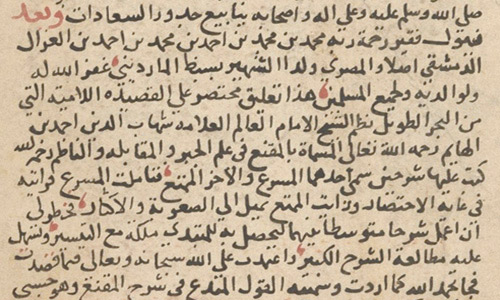 صلى الله وسلم عليه وعلى اله واصحابه ينابيع صدور السعادات وبعد
فيقول فقير رحمة ربه محمد بن محمد بن احمد بن محمد بن احمد بن الغزال
الدمشقي اصلا والمصري ولدا الشهير بسبط المارديني غفر الله له
ولوالديه ولجميع المسلمين هذا تعليق مختصر على القصيدة اللامية التي
من البحر الطويل نظم الشيخ الامام العالم العلامه شهاب الدين احمد بن
الهايم رحمه الله تعالى المسماة بالمقنع في علم الجبر والمقابله والناظم رحمه الله
كتب عليها شرحين سمى احدهما المسرع والاخر الممتع فتاملت المسرع فرايته
في غاية الاختصار ورايت الممتع يميل الى الصعوبة والاكثار فخطر لي
ان اعمل شرحا متوسطا بينهما ليحصل به للمبتدي ملكة مع التيسير وتسهل
عليه مطالعة الشرح الكبير واعتمدت على الله سبحانه وتعالى فيما قصدت
فجا بحمد الله كما اردت وسميته القول المبدع في شرح المقنع وهو حسبي